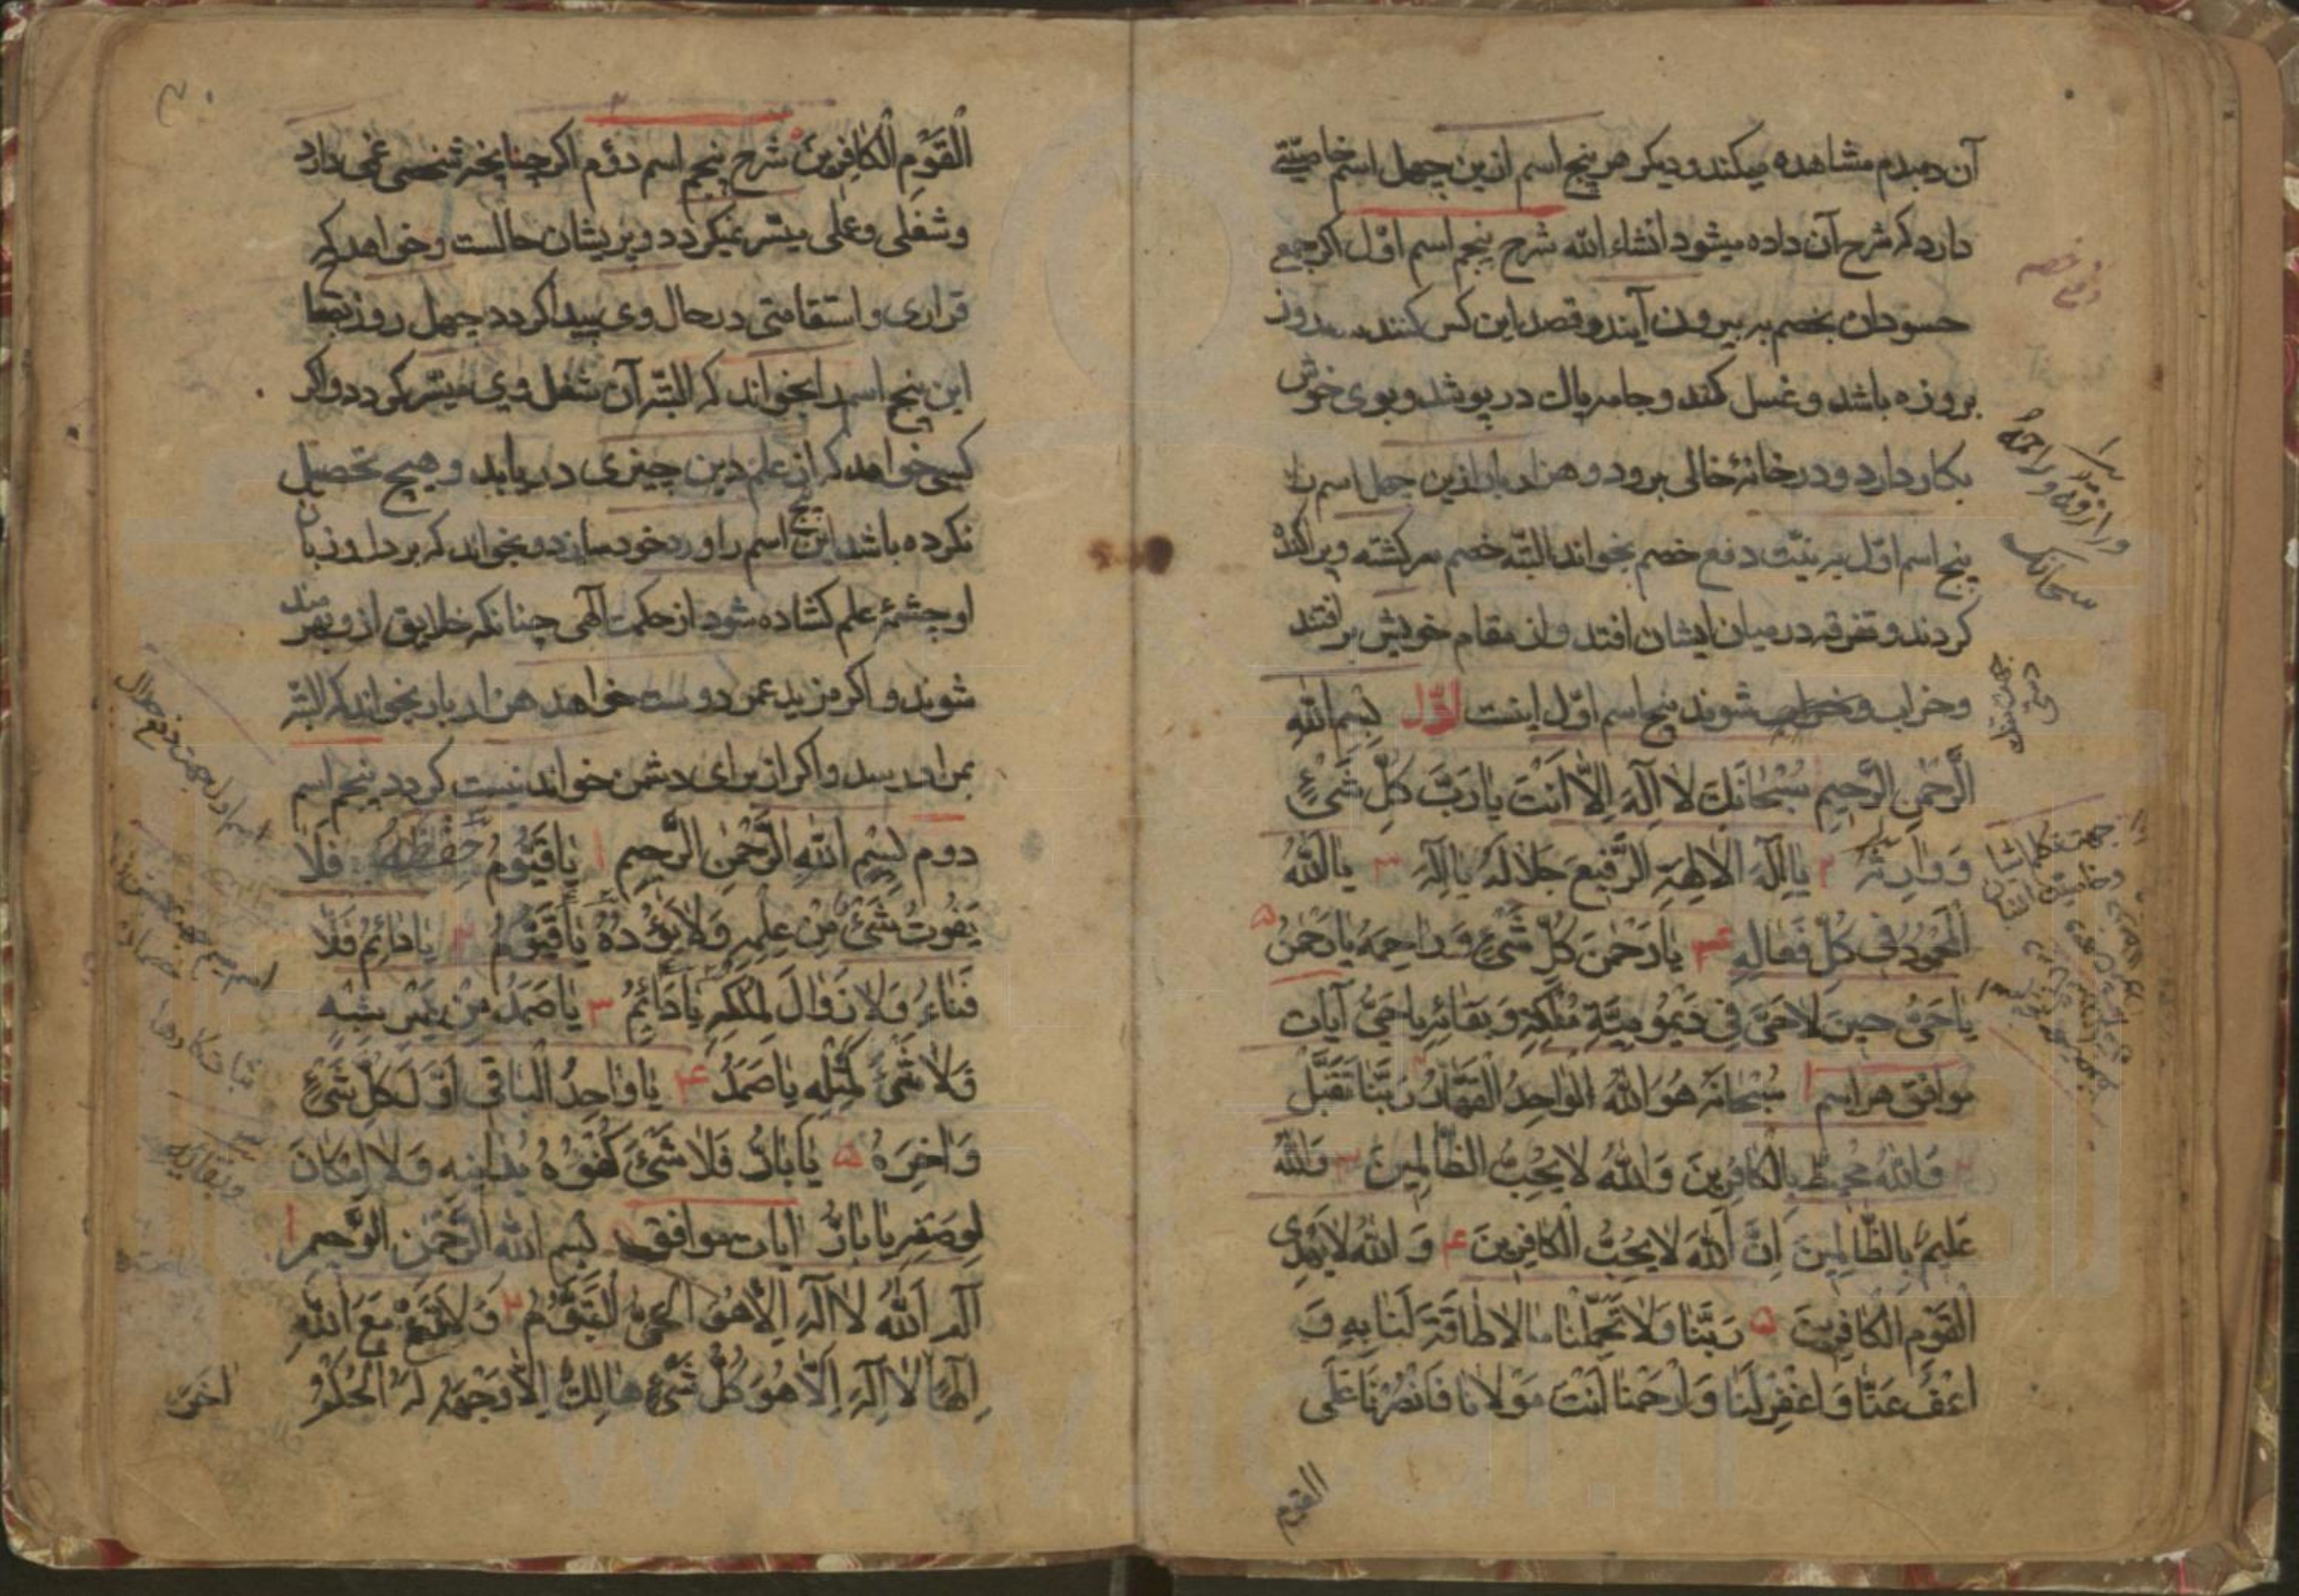 آن دمبدم مشاهده میکند و دیکر هر پنج اسم ازین چهل اسم خاصیّتی
دارد که شرح آن داده میشود انشاء الله شرح پنجم اسم اوّل اکر جمع
حسودان بخصم به بیرون آیند و قصد این کس کنند سه روز
بروزه باشد و غسل کند و جامه پاک در پوشد و بوی خوش
بکار دارد و در خانهٔ خالی برود و هزار بار ازین چهل اسم
پنج اسم اوّل به نیّت دفع خصم بخواند البتّه خصم سرکشته و پراکنده
کردند و تفرقه در میان ایشان افتد و از مقام خویش بر افتند
وخراب شوند پنج اسم اوّل اینست اوّل بسم الله
الرَّحْمنِ الرَّحیمِ سُبْحانَكَ لا اِلَهَ اِلاّ اَنْتَ یا رَبَّ كُلِّ شَیْءٍ
وَ وارِثَهُ ۲ یا اِلَهَ الالِهَةِ الرَّفیعَ جَلالُهُ یا اِلَهُ ۳ یا اَللهُ
الْمَحْمُودُ فی كُلِّ فَعالِهِ ۴ یا رَحْمنَ كُلِّ شَیْءٍ وَ راحِمَهُ یا رَحْمنُ ۵
یا حَیُّ حینَ لا حَیَّ فی دَیْمُومِیَّةِ مُلْكِهِ وَ بَقائِهِ یا حَیُّ آیات
موافق هر اسم ۱ سُبْحانَهُ هُوَ اللهُ الْواحِدُ الْقَهّارُ رَبَّنا تَقَبَّلْ
۲ وَاللهُ مُحیطٌ بِالْكافِرینَ وَاللهُ لا یُحِبُّ الظّالِمینَ ۳ وَاللهُ
عَلیمٌ بِالظّالِمینَ اِنَّ اللهَ لا یُحِبُّ الْكافِرینَ ۴ وَ اللهُ لا یَهْدِی
الْقَوْمِ الْكافِرینَ ۵ رَبَّنا وَلا تُحَمِّلْنا ما لا طاقَةَ لَنا بِهِ وَ
اعْفُ عَنّا وَ اغْفِرْ لَنا وَ ارْحَمْنا اَنْتَ مَوْلانا فَانْصُرْنا عَلَی
القوم
وراز قه و راحمه
سبحانک
الْقَوْمِ الْكافِرینَ شرح پنجم اسم دوّم اکر چنانچه شخصی غمی دارد
و شغلی و عملی میسّر نمیکردد و پریشان حالست و خواهد که
قراری و استقامتی در حال وی پیدا کردد چهل روز
این پنج اسم را بخواند که البتّه آن شغل وی میسّر کردد و اکر
کسی خواهد که از علم دین چیزی دریابد و هیچ تحصیل
نکرده باشد این پنج اسم را ورد خود سازد و بخواند که بر دل و زبان
او چشمهٔ علم کشاده شود از حکمت الهی چنانکه خلایق از وی بهره‌مند
شوند و اکر مزید عمر دوست خواهد هزار بار بخواند که البتّه
بمراد رسد و اکر از برای دشمن خواند نیست کردد پنجم اسم
دوم بِسْمِ اللهِ الرَّحْمنِ الرَّحیمِ ۱ یا قَیُّومُ فَلا
یَفُوتُ شَیْءٌ مِنْ عِلْمِهِ وَلا یَؤُدُهُ یا قَیُّومُ ۲ یا دائِمُ فَلا
فَناءَ وَلا زَوالَ لِمُلْكِهِ یا دائِمُ ۳ یا صَمَدُ مِنْ غَیْرِ شِبْهٍ
فَلا شَیْءَ كَمِثْلِهِ یا صَمَدُ ۴ یا واحِدُ الْباقی اَوَّلَ كُلِّ شَیْءٍ
وَ اخِرَهُ ۵ یا بارُّ فَلا شَیْءَ كُفْوُهُ یُدانیهِ وَلا اِمْكانَ
لِوَصْفِهِ یا بارُّ ایات موافق بسم الله الرَّحْمنِ الرَّحیمِ ۱
الم اَللهُ لا اِلهَ اِلاّ هُوَ الْحَیُّ الْقَیُّومُ ۲ وَلا تَدْعُ مَعَ اللهِ
اِلهًا لا اِلهَ اِلاّ هُوَ كُلُّ شَیْءٍ هالِكٌ اِلاّ وَجْهَهُ لَهُ الْحُكْمُ
وبقائه